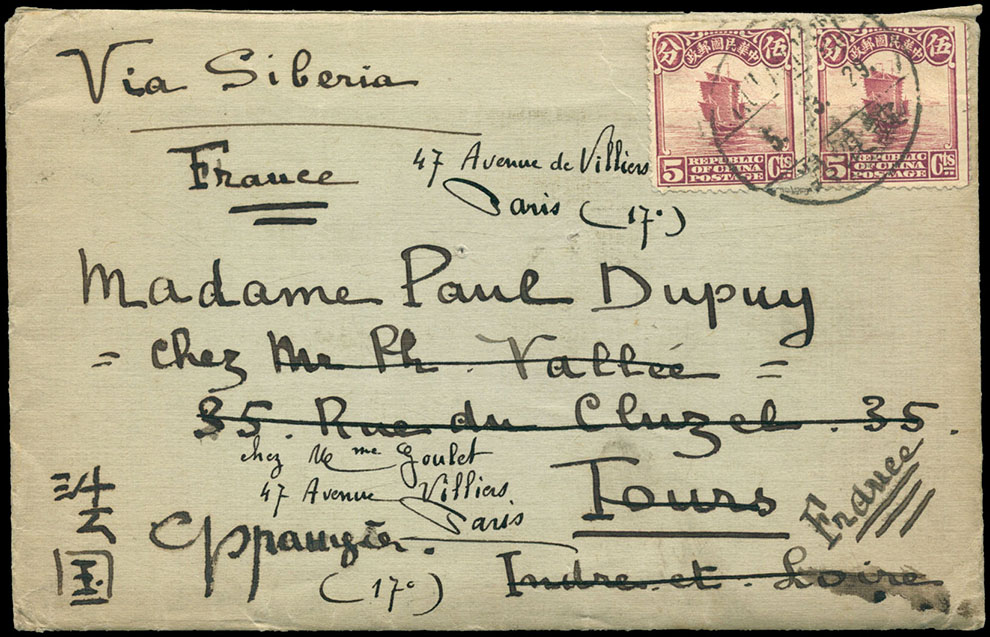 Via Siberia
France
47 Avenue de Villiers
Paris (17°)
分 政郵國民華中 伍
5 REPUBLIC OF CHINA POSTAGE Cts
分 政郵國民華中 伍
5 REPUBLIC OF CHINA POSTAGE Cts
Madame Paul Dupuy
= chez Mr Ph. Vallée =
35. Rue du Cluzel. 35.
chez Mme Goulet
47 Avenue Villiers
Paris
(17°)
Tours
Indre et Loire
France